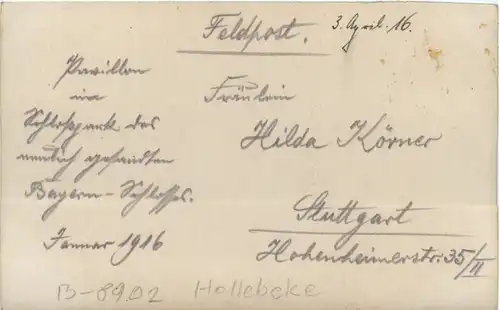 Feldpost.
3. April. 16.
Pavillon
im
Schlosspark des
neulich gesandten
Bayern-Schlosses.
Januar 1916
Fräulein
Hilda Körner
Stuttgart
Hohenheimerstr: 35/II
B-8902 Hollebeke